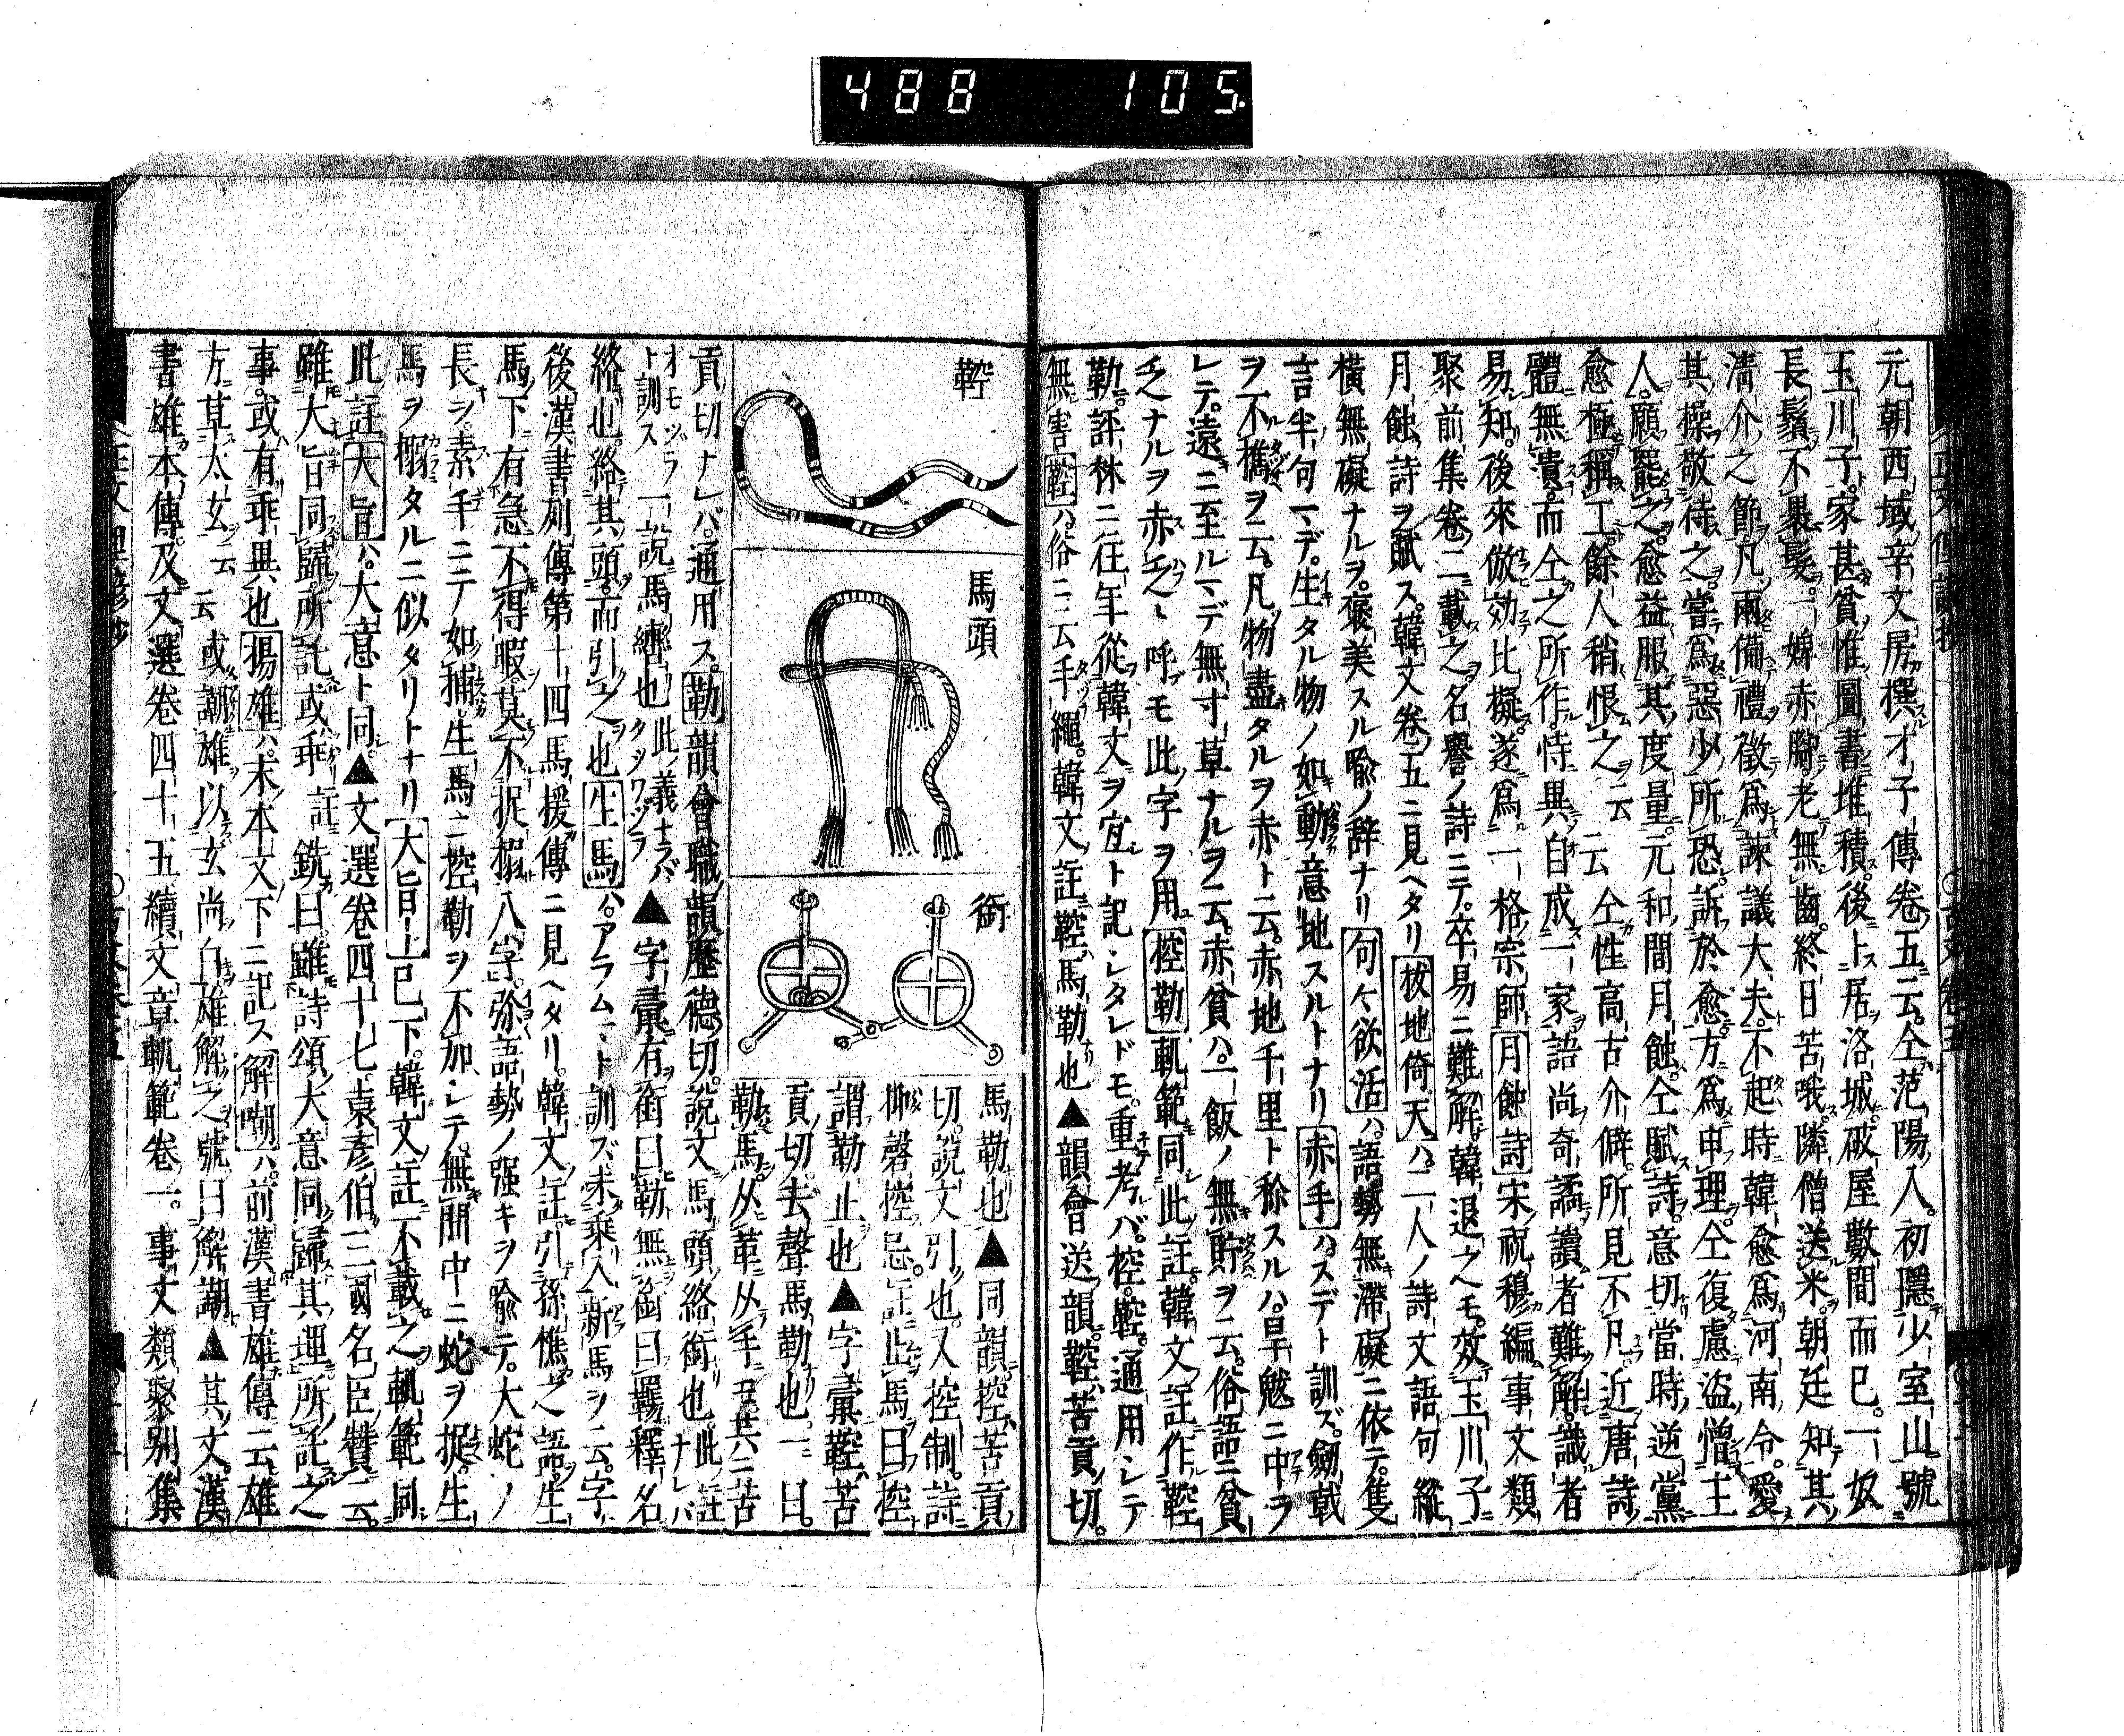 488 105
元朝西域辛文房撰才子傳卷五云仝范陽人初隱少室山號
玉川子家甚貧惟圖書堆積後上居洛城破屋數間而已一奴
長鬚不裹髮一婢赤脚老無齒終日苦哦隣僧送米朝廷知其
淸介之節凡兩備禮徵爲諫議大夫不起時韓愈爲河南令愛
其操敬待之嘗爲惡少所恐訴於愈方爲申理仝復慮盜憎主
人願罷之愈益服其度量元和間月蝕仝賦詩意切當時逆黨
愈極稱工餘人稍恨之云云仝性高古介僻所見不凡近唐詩
體無遺而仝之所作特異自成一家語尚奇譎讀者難解識者
易知後來倣効比擬遂爲一格宗師月蝕詩宋祝穆編事文類
聚前集卷二載之名譽ノ詩ニテ卒易ニ難解韓退之モ效玉川子
月蝕詩ヲ賦ス韓文卷五ニ見ヘタリ拔地倚天ハ二人ノ詩文語句縱
橫無礙ナルヲ褒美スル喩ノ辞ナリ句々欲活ハ語勢無滯礙ニ依テ隻
言半句マデ生タル物ノ如動意地スルトナリ赤手ハスデト訓ズ劒戟
ヲ不携ヲ云凡物盡タルヲ赤ト云赤地千里ト称スルハ旱魃ニ中ヲ
レテ遠ニ至ルマデ無寸草ナルヲ云赤貧ハ一飯ノ無貯ヲ云俗語ニ貧
乏ナルヲ赤乏ト呼モ此字ヲ用控勒軌範同此註韓文註作鞚
勒評林ニ往年從韓文ヲ宜ト記シタレドモ重考バ控鞚通用シテ
無害鞚ハ俗ニ云手繩韓文註鞚馬勒也▲韻會送韻鞚苦貢切
鞚
馬頭
銜
馬勒也▲同韻控苦貢
切說文引也又控制詩
抑磬控忌註止馬曰控
謂勒止也▲字彙鞚苦
貢切去聲馬勒也一曰
勒馬从革从手其ニ苦
貢切ナレバ通用ス勒韻會職韻歷德切說文馬頭絡銜也此註
オモヅラト訓ス一說馬轡也此義ナラバクツワヅラナレバ▲字彙有銜曰勒無銜曰羈釋名
絡也絡其頭而引之也生馬ハアラムマト訓ズ未乘入新馬ヲ云字
後漢書列傳第十四馬援傳ニ見ヘタリ韓文註引孫樵之語生
馬下有急不得暇莫不捉搦八字弥語勢ノ强キヲ喩テ大蛇ノ
長ヲ素手ニテ如捕生馬ニ控勒ヲ不加シテ無間中ニ蛇ヲ捉生
馬ヲ搦タルニ似タリトナリ大旨上巳下韓文註不載之軌範同
此註大旨ハ大意ト同▲文選卷四十七袁彥伯三國名臣贊云
雖大旨同歸所託或乖註銑曰雖詩頌大意同歸其理所託之
事或有乖異也揚雄ハ末本文下ニ記ス解嘲ハ前漢書雄傳云雄
方草太玄云云或嘲雄以玄尚白雄解之號曰解嘲▲其文漢
書雄本傳及文選卷四十五續文章軌範卷一事文類聚别集